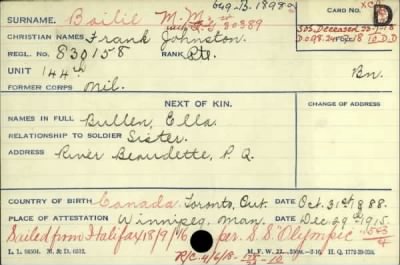 CARD NO.
SURNAME. Bailie M.M.
CHRISTIAN NAMES Frank Johnston.
REGL. NO. 830158 RANK Pte.
UNIT 144th Bn.
FORMER CORPS Nil.
NEXT OF KIN.
CHANGE OF ADDRESS
NAMES IN FULL Bullen, Ella.
RELATIONSHIP TO SOLDIER Sister.
ADDRESS River Beaudette, P. Q.
COUNTRY OF BIRTH Canada Toronto, Ont. DATE Oct. 31st 1888.
PLACE OF ATTESTATION Winnipeg, Man. DATE Dec. 29th 1915.
Sailed from Halifax 18/9/16 per. S.S. Olympic
R/C. 4/6/18-